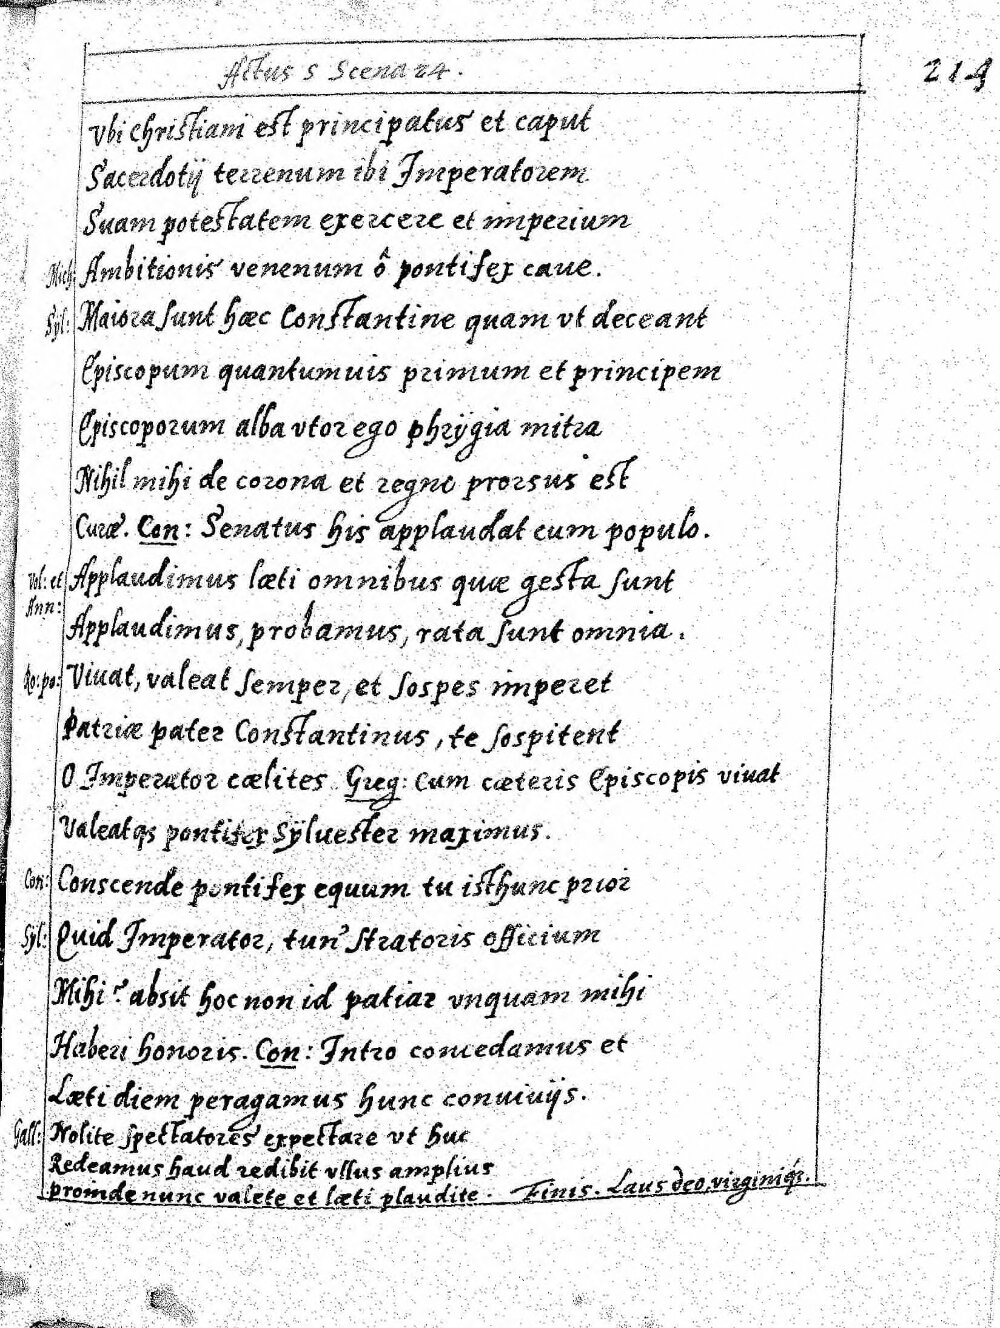 Actus 5 Scena 24.
214
Vbi christiani est principatus et caput
Sacerdotij terrenum ibi Imperatorem
Suam potestatem exercere et imperium
Mich: Ambitionis venenum ô pontifex caue.
Syl: Maiora sunt hæc Constantine quam vt deceant
Episcopum quantumuis primum et principem
Episcoporum alba vtor ego phrÿgia mitra
Nihil mihi de corona et regno prorsus est
Curæ. Con: Senatus his applaudat cum populo.
Vol: et Applaudimus læti omnibus quæ gesta sunt
Ann: Applaudimus, probamus, rata sunt omnia.
Ro: po: Viuat, valeat semper, et sospes imperet
Patriæ pater Constantinus, te sospitent
O Imperator cælites. Greg: Cum cæteris Episcopis viuat
Valeatqs pontifex Sÿluester maximus.
Con: Conscende pontifex equum tu isthunc prior
Syl: Quid Imperator, tun' stratoris officium
Mihi? absit hoc non id patiar vnquam mihi
Haberi honoris. Con: Intro concedamus et
Læti diem peragamus hunc conuiuijs.
Gall: Nolite spectatores expectare vt huc
Redeamus haud redibit vllus amplius
proinde nunc valete et læti plaudite. Finis. Laus deo, virginiqs.